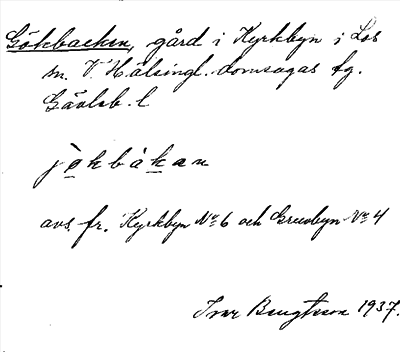 Gökbacken, gård i Kyrkbyn i Los
sn. V. Hälsingl. domsagas tg.
Gävleb. l
jøkbákan
avs. fr. Kyrkbyn No 6 och Gruvbyn No 4
Ivar Bengtsson 1937.